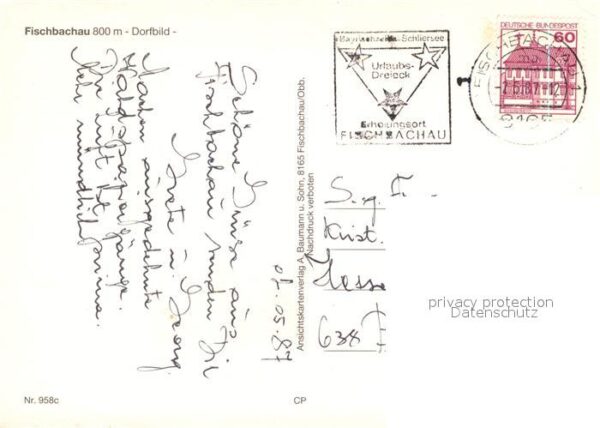 Fischbachau 800 m - Dorfbild -
Bayrischzell - Schliersee
Urlaubs-
Dreieck
Erholungsort
FISCHBACHAU
DEUTSCHE BUNDESPOST
60
FISCHBACHAU
-7.5.87-12
8165
Schöne Grüsse aus
Fischbachau senden Dir
Grete u. Georg
Machen ausgedehnte
Waldspaziergänge.
Luft ist
mündlich
07.05.87
Ansichtskartenverlag A. Baumann u. Sohn, 8165 Fischbachau/Obb.
Nachdruck verboten
Hesse
638
privacy protection
Datenschutz
Nr. 958c
CP